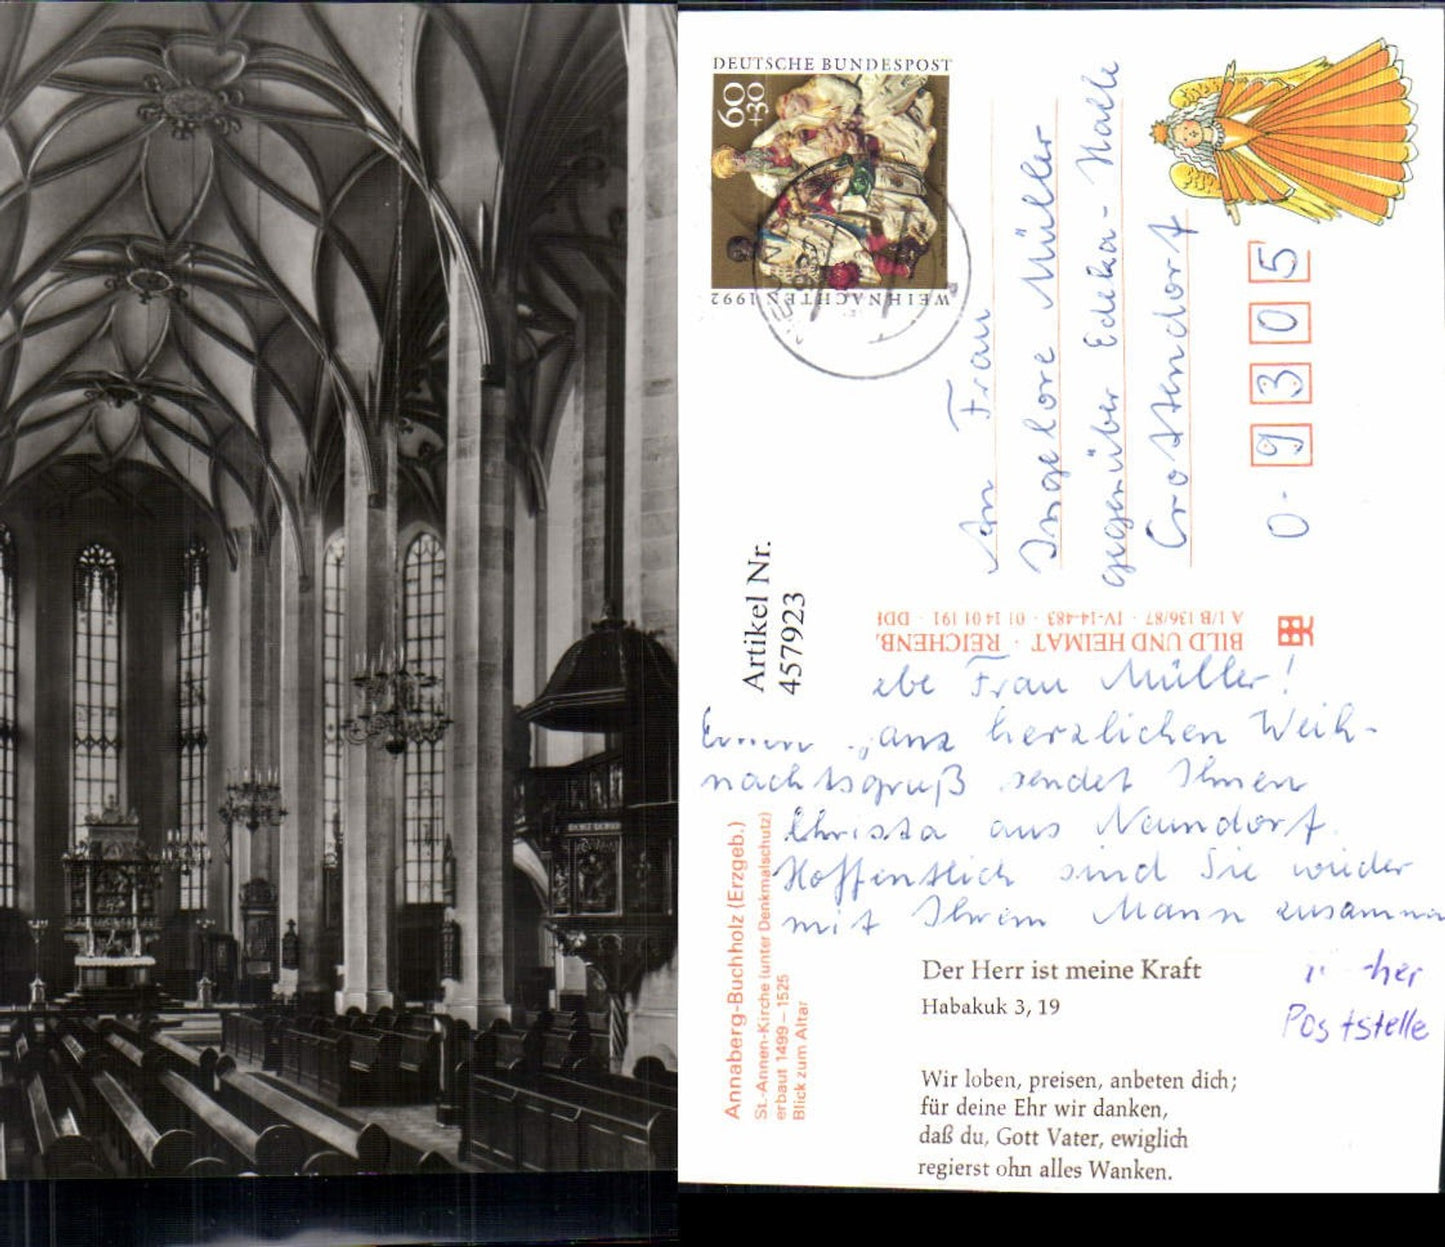 DEUTSCHE BUNDESPOST
60
+30
WEIHNACHTEN 1992
An Frau
Ingelore Müller
gegenüber Edeka-Halle
Crottendorf
O-9305
Artikel Nr.
457923
BILD UND HEIMAT · REICHENB.
A 1/B 136/87 · IV-14-483 · 01 14 01 191 · DDR
Frau Müller!
ganz herzlichen Weih-
nachtsgruß sendet Ihnen
Christa aus Naundorf.
Hoffentlich sind Sie wieder
mit Ihrem Mann zusamm
Annaberg-Buchholz (Erzgeb.)
St.-Annen-Kirche (unter Denkmalschutz)
erbaut 1499–1525
Blick zum Altar
Der Herr ist meine Kraft
Habakuk 3, 19
Poststelle
Wir loben, preisen, anbeten dich;
für deine Ehr wir danken,
daß du, Gott Vater, ewiglich
regierst ohn alles Wanken.